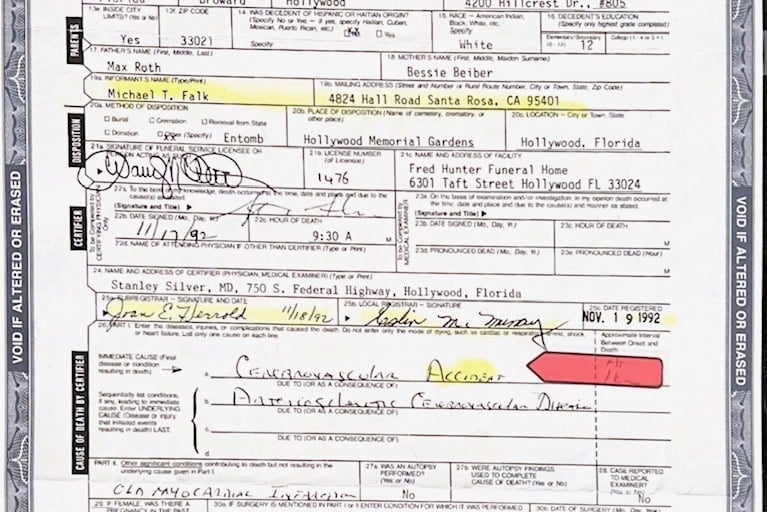 Broward Hollywood 4200 Hillcrest Dr., #805
13e INSIDE CITY LIMITS? (Yes or No) 13f. ZIP CODE 14. WAS DECEDENT OF HISPANIC OR HAITIAN ORIGIN? (Specify No or Yes – If yes, specify Haitian, Cuban, Mexican, Puerto Rican, etc.) Yes 15. RACE – American Indian, Black, White, etc. Specify: 16. DECEDENT'S EDUCATION (Specify only highest grade completed)
Yes 33021 Specify: White Elementary/Secondary (0 - 12) 12 College (1 - 4 or 5 + )
PARENTS
17. FATHER'S NAME (First, Middle, Last) 18 MOTHER'S NAME (First, Middle, Maiden Surname)
Max Roth Bessie Beiber
19a. INFORMANT'S NAME (Type/Print) 19b. MAILING ADDRESS (Street and Number or Rural Route Number, City or Town, State, Zip Code)
Michael T. Falk 4824 Hall Road Santa Rosa, CA 95401
DISPOSITION
20a. METHOD OF DISPOSITION 20b. PLACE OF DISPOSITION (Name of cemetery, crematory, or other place) 20c. LOCATION – City or Town, State
Burial Cremation Removal from State
Donation Other (Specify) Entomb Hollywood Memorial Gardens Hollywood, Florida
21a. SIGNATURE OF FUNERAL SERVICE LICENSEE OR PERSON ACTING AS 21b. LICENSE NUMBER (of Licensee) 21c. NAME AND ADDRESS OF FACILITY
1476 Fred Hunter Funeral Home
6301 Taft Street Hollywood FL 33024
CERTIFIER
To be Completed by CERTIFYING PHYSICIAN Only
22a. To the best of my knowledge, death occurred at the time, date and place and due to the cause(s) as stated.
(Signature and Title)
22b. DATE SIGNED (Mo., Day, Yr.) 22c. HOUR OF DEATH
11/17/92 9:30 A M
22d. NAME OF ATTENDING PHYSICIAN IF OTHER THAN CERTIFIER (Type or Print)
To be Completed by MEDICAL EXAMINER
23a. On the basis of examination and/or investigation, in my opinion death occurred at the time, date and place and due to the cause(s) and manner as stated.
(Signature and Title)
23b. DATE SIGNED (Mo., Day, Yr.) 23c. HOUR OF DEATH
M
23d. PRONOUNCED DEAD (Mo., Day, Yr.) 23e. PRONOUNCED DEAD (Hour)
M
24. NAME AND ADDRESS OF CERTIFIER (PHYSICIAN, MEDICAL EXAMINER) (Type or Print)
Stanley Silver, MD, 750 S. Federal Highway, Hollywood, Florida
25a. SUBREGISTRAR – SIGNATURE AND DATE 25b. LOCAL REGISTRAR – SIGNATURE 25c. DATE REGISTERED
Joan E. Herrold 11/18/92 NOV. 19 1992
CAUSE OF DEATH BY CERTIFIER
26. PART I. Enter the diseases, injuries, or complications that caused the death. Do not enter only the mode of dying, such as cardiac or respiratory arrest, shock, or heart failure. List only one cause on each line. Approximate Interval Between Onset and Death
IMMEDIATE CAUSE (Final disease or condition resulting in death)
a. CEREBROVASCULAR ACCIDENT
DUE TO (OR AS A CONSEQUENCE OF)
Sequentially list conditions, if any, leading to immediate cause. Enter UNDERLYING CAUSE (Disease or injury that initiated events resulting in death) LAST.
b. ARTERIOSCLEROTIC CEREBROVASCULAR DISEASE
DUE TO (OR AS A CONSEQUENCE OF)
c.
DUE TO (OR AS A CONSEQUENCE OF)
d.
PART II. Other significant conditions contributing to death but not resulting in the underlying cause given in Part I 27a. WAS AN AUTOPSY PERFORMED? (Yes or No) 27b. WERE AUTOPSY FINDINGS USED TO COMPLETE CAUSE OF DEATH? (Yes or No) 28. CASE REPORTED TO MEDICAL EXAMINER? (Yes or No)
OLD MYOCARDIAL INFARCTION No No
29. IF FEMALE, WAS THERE A PREGNANCY IN THE 30a. IF SURGERY IS MENTIONED IN PART I or II ENTER CONDITION FOR WHICH IT WAS PERFORMED 30b. DATE OF SURGERY (Mo., Day, Year)
VOID IF ALTERED OR ERASED
VOID IF ALTERED OR ERASED